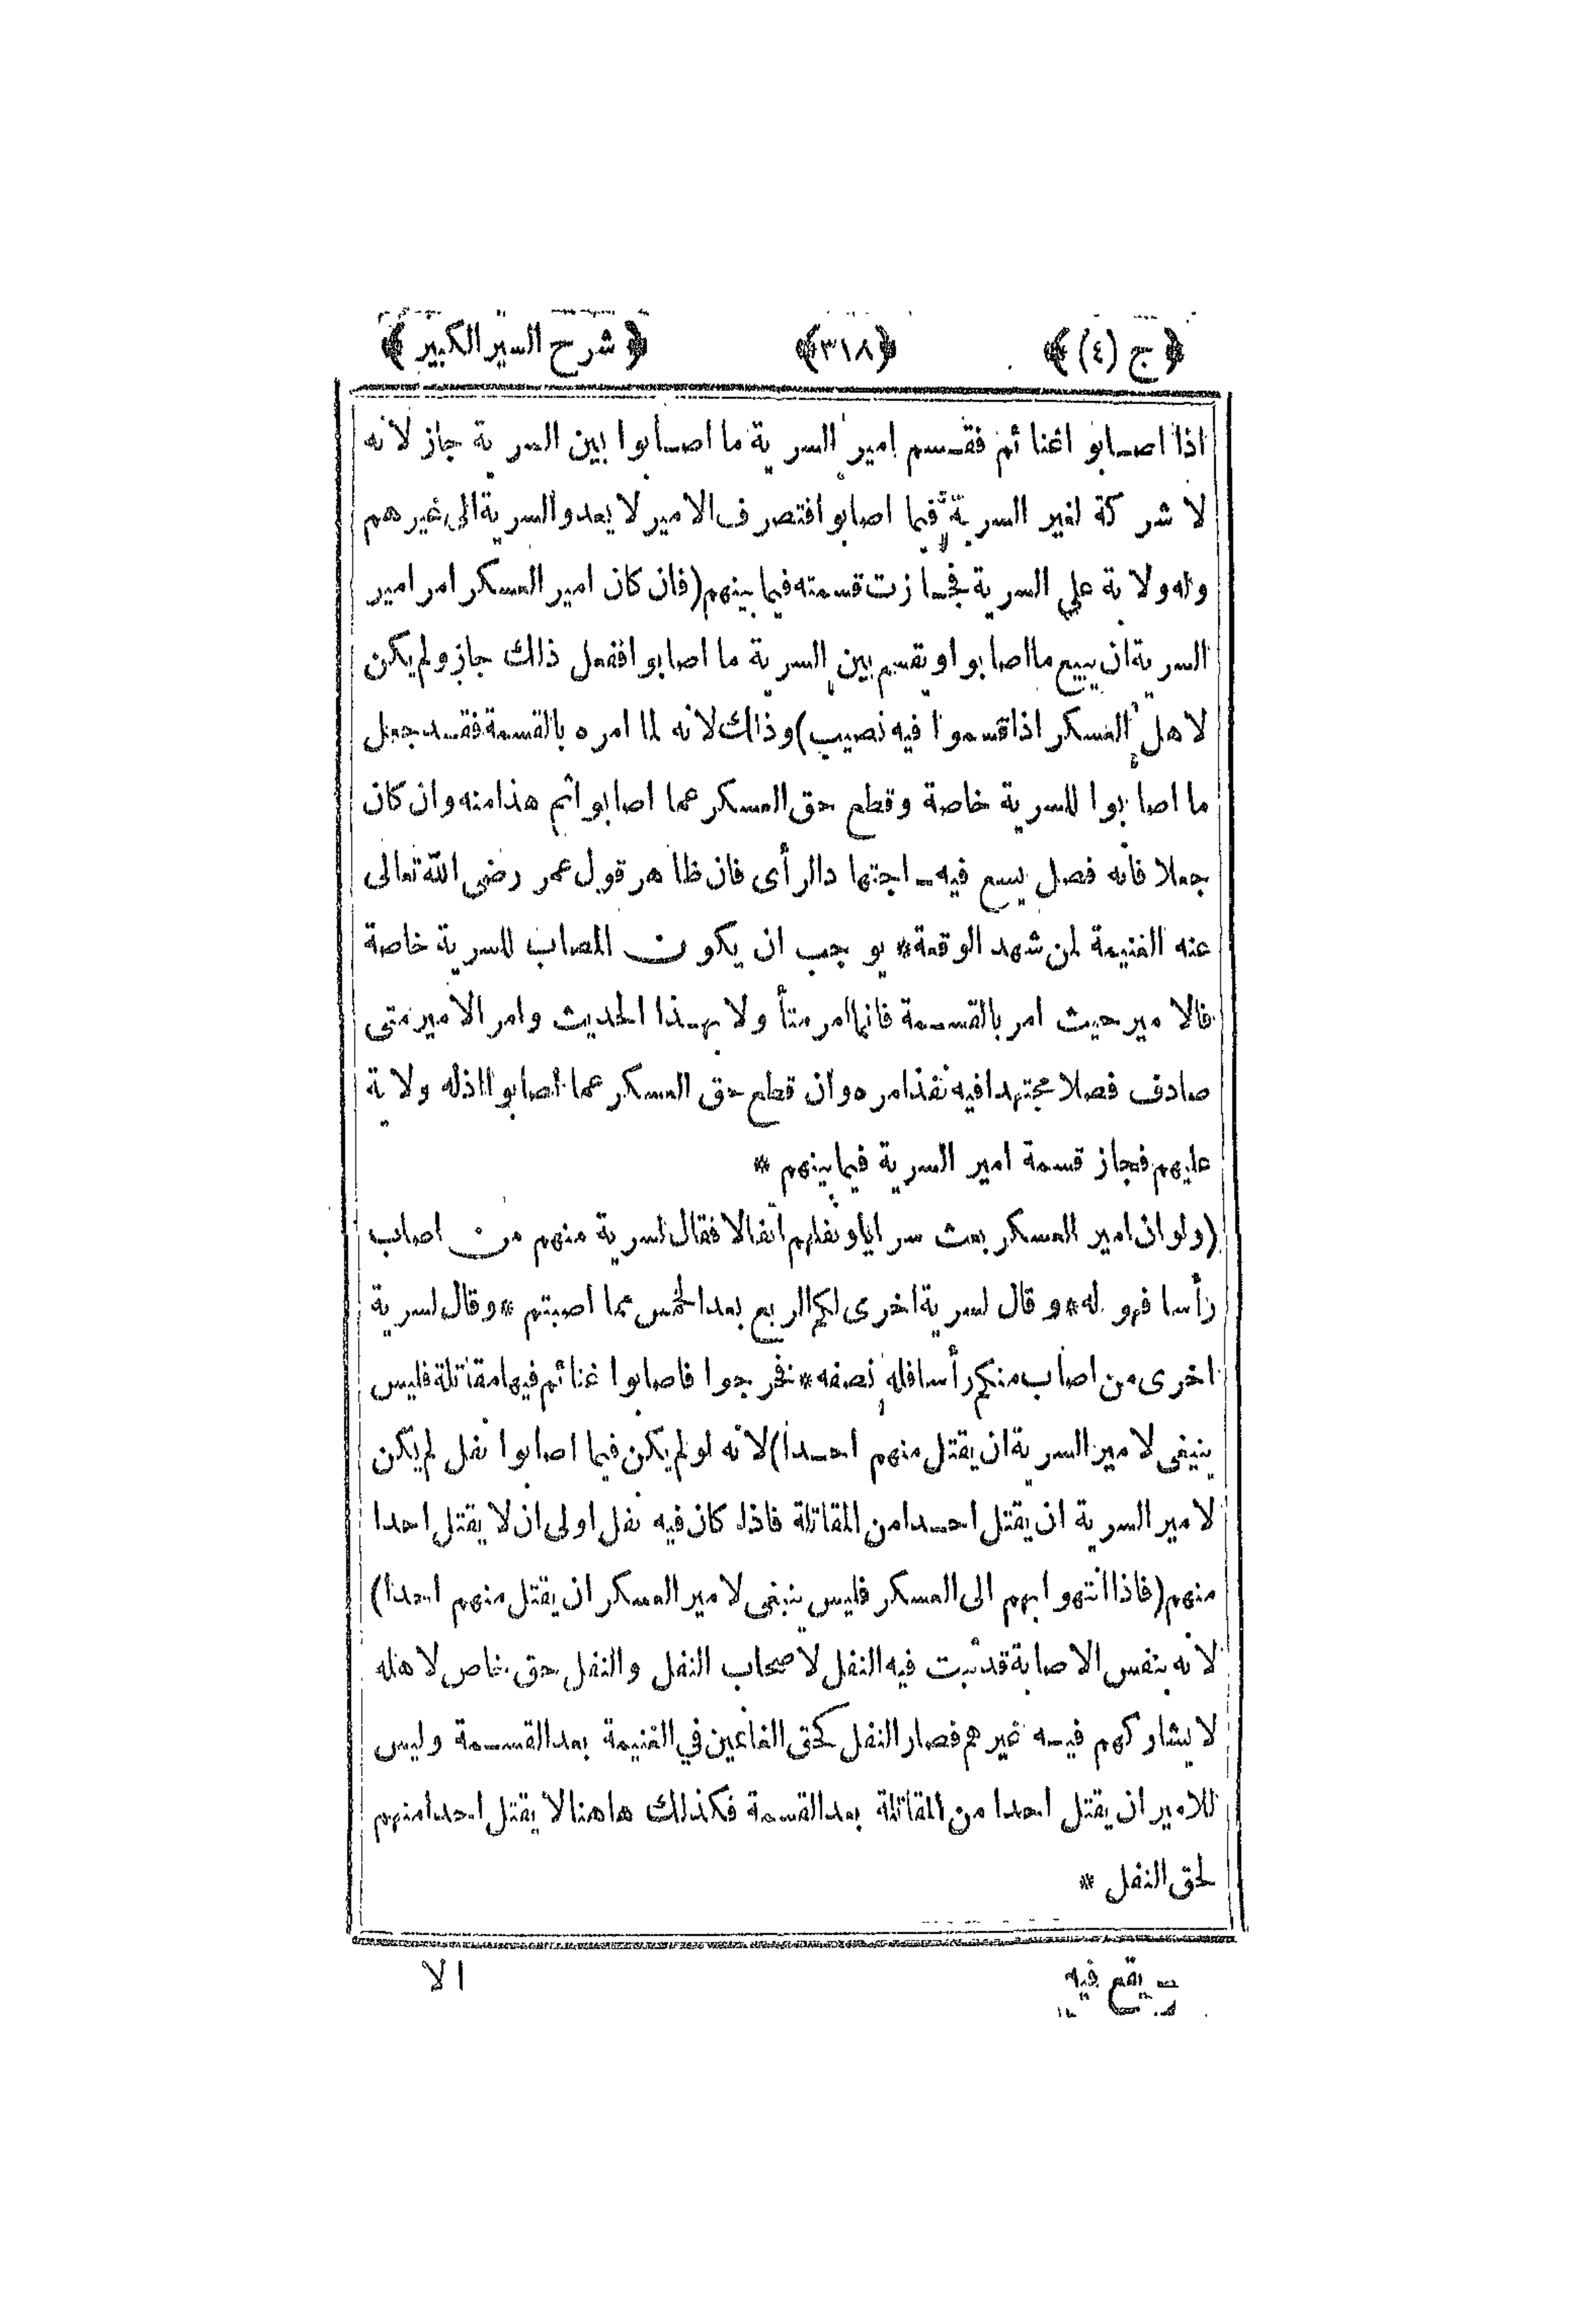 ﴿ج (٤)﴾ ﴿٣١٨﴾ ﴿شرح السير الكبير﴾
اذا اصابوا غنائم فقسم امير السرية ما اصابوا بين السرية جاز لانه
لا شركة لغير السرية فيما اصابوا فتصرف الامير لا يعدو السرية الى غيرهم
وله ولاية علي السرية فجازت قسمته فيما بينهم (فان كان امير العسكر امر امير
السرية ان يبيع ما اصابوا او يقسم بين السرية ما اصابوا ففعل ذلك جاز ولم يكن
لاهل العسكر اذا قسموا فيه نصيب) وذلك لانه لما امره بالقسمة فقد جعل
ما اصابوا للسرية خاصة وقطع حق العسكر عما اصابوا ثم هذا منه وان كان
جعلا فانه فصل يسع فيه اجتهاد الرأى فان ظاهر قول عمر رضى الله تعالى
عنه الغنيمة لمن شهد الوقعة * يوجب ان يكون المصاب للسرية خاصة
فالامير حيث امر بالقسمة فانما امر متأولا بهذا الحديث وامر الامير متى
صادف فصلا مجتهدا فيه نفذ امره وان قطع حق العسكر عما اصابوا اذله ولاية
عليهم فجاز قسمة امير السرية فيما بينهم *
(ولو ان امير العسكر بعث سرايا ونفلهم انفالا فقال لسرية منهم من اصاب
رأسا فهو له * وقال لسرية اخرى لكم الربع بعد الخمس مما اصبتم * وقال لسرية
اخرى من اصاب منكم رأسا فله نصفه * فخرجوا فاصابوا غنائم فيها مقاتلة فليس
ينبغى لامير السرية ان يقتل منهم احدا) لانه لو لم يكن فيما اصابوا نفل لم يكن
لامير السرية ان يقتل احدا من المقاتلة فاذا كان فيه نفل اولى ان لا يقتل احدا
منهم (فاذا انتهوا بهم الى العسكر فليس ينبغى لامير العسكر ان يقتل منهم احدا)
لانه بنفس الاصابة قد ثبت فيه النفل لاصحاب النفل والنفل حق خاص لاهله
لا يشاركهم فيه غيرهم فصار النفل كحق الغانمين في الغنيمة بعد القسمة وليس
للامير ان يقتل احدا من المقاتلة بعد القسمة فكذلك هاهنا لا يقتل احدا منهم
لحق النفل *
يقع فيه
الا